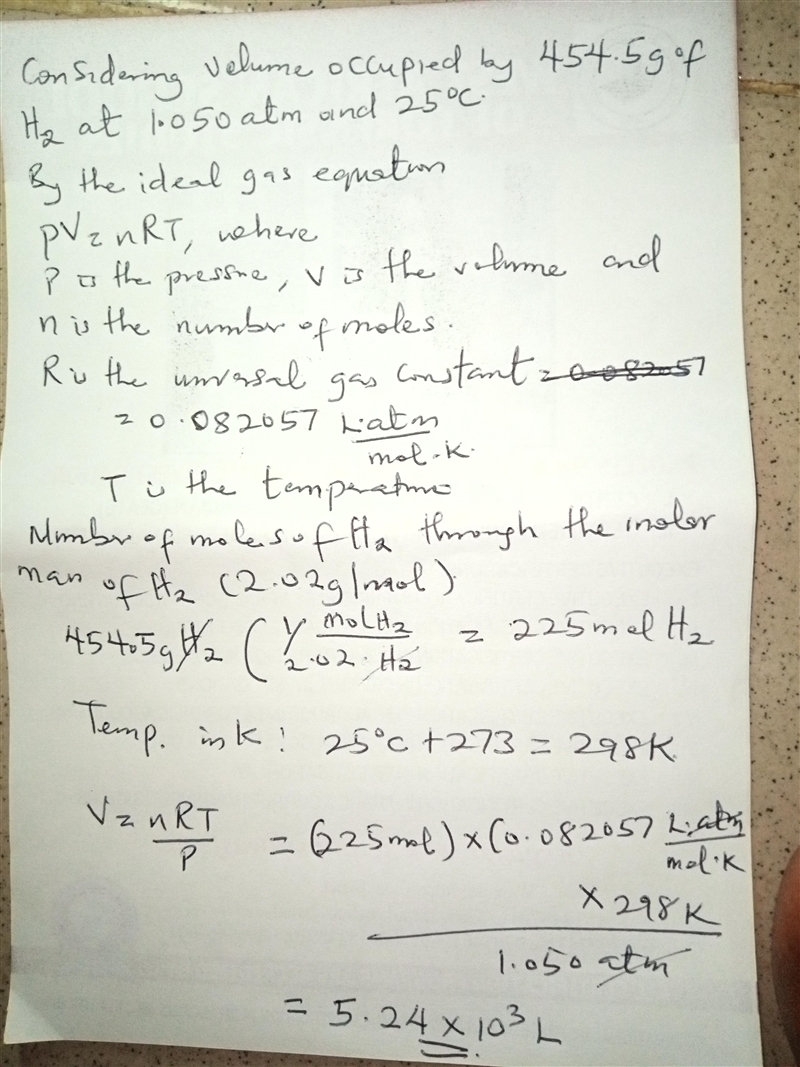 Considering Volume occupied by 454.5g of
H₂ at 1.050 atm and 25°C.
By the ideal gas equation
PV = nRT, where
P is the pressure, V is the volume and
n is the number of moles.
R is the universal gas constant = 0.082057
= 0.082057 L·atm/mol·K.
T is the temperature
Number of moles of H₂ through the molar
mass of H₂ (2.02g/mol).
454.5g H₂ (1 mol H₂/2.02 · H₂ = 225 mol H₂
Temp. in K: 25°C + 273 = 298K
V = nRT/P = (225 mol) × (0.082057 L·atm/mol·K
× 298K
1.050 atm
= 5.24 × 10³ L